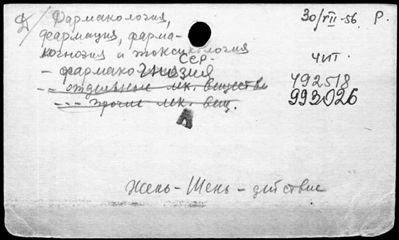 Фармакология, 30/VII-56. Р.
фармация, фарма-
когнозия и токсикология
ССР. чит.
- фармакогнозия 492518
- отдельные лек. вещества 993026
- - - прочие лек. вещ.
А
Жень-Шень - действие